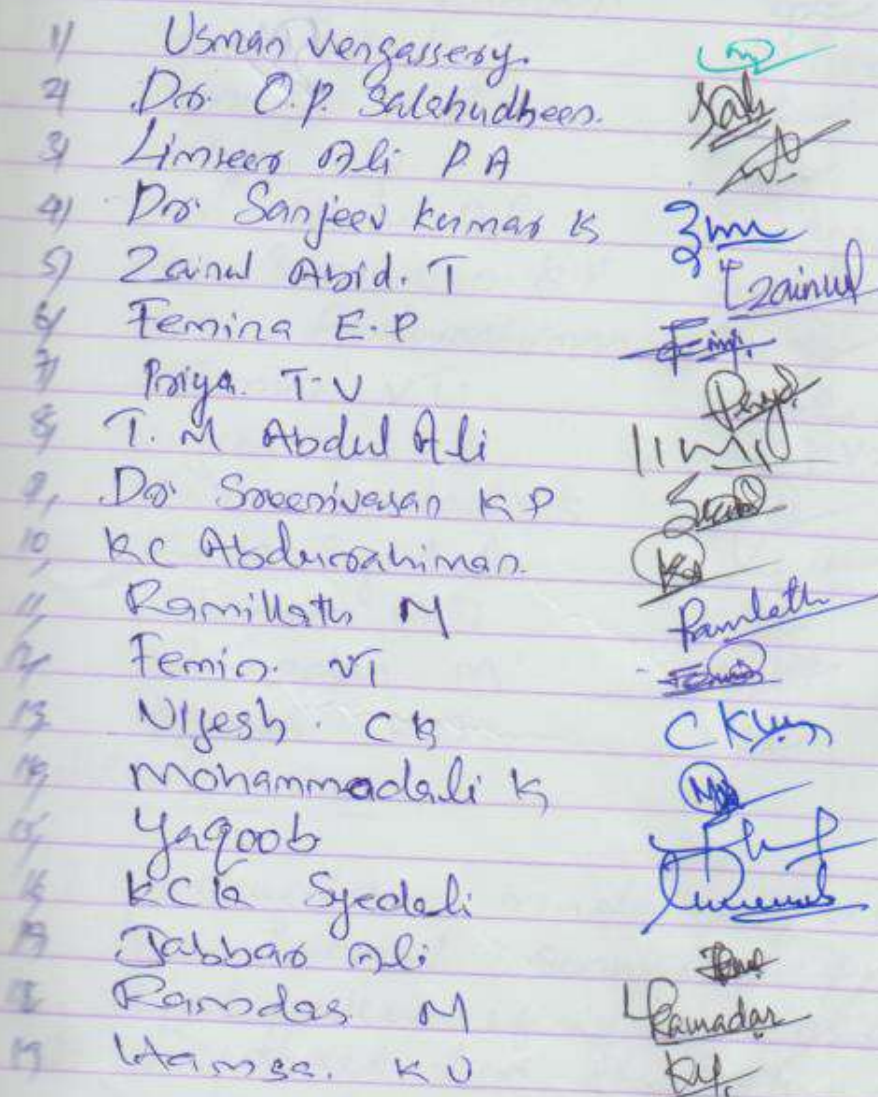 1) Usman Vengassery.
2) Dr. O.P. Salahudheen.
3) Limseer Ali P A
4) Dr. Sanjeev Kumar K
5) Zainul Abid. T Zainul
6) Femina E.P
7) Priya. T.V
8) T. M Abdul Ali
9, Dr Sreenivasan K P
10, KC Abdurrahiman.
11, Ramillath M Ramlath
12, Femin. VT
13, Nijesh. CK CK
14, Mohammadali K
15, Yaqoob
16, KCK Syedali
17, Jabbar Ali
18, Ramdas M Ramadas
19, Hamsa. K V